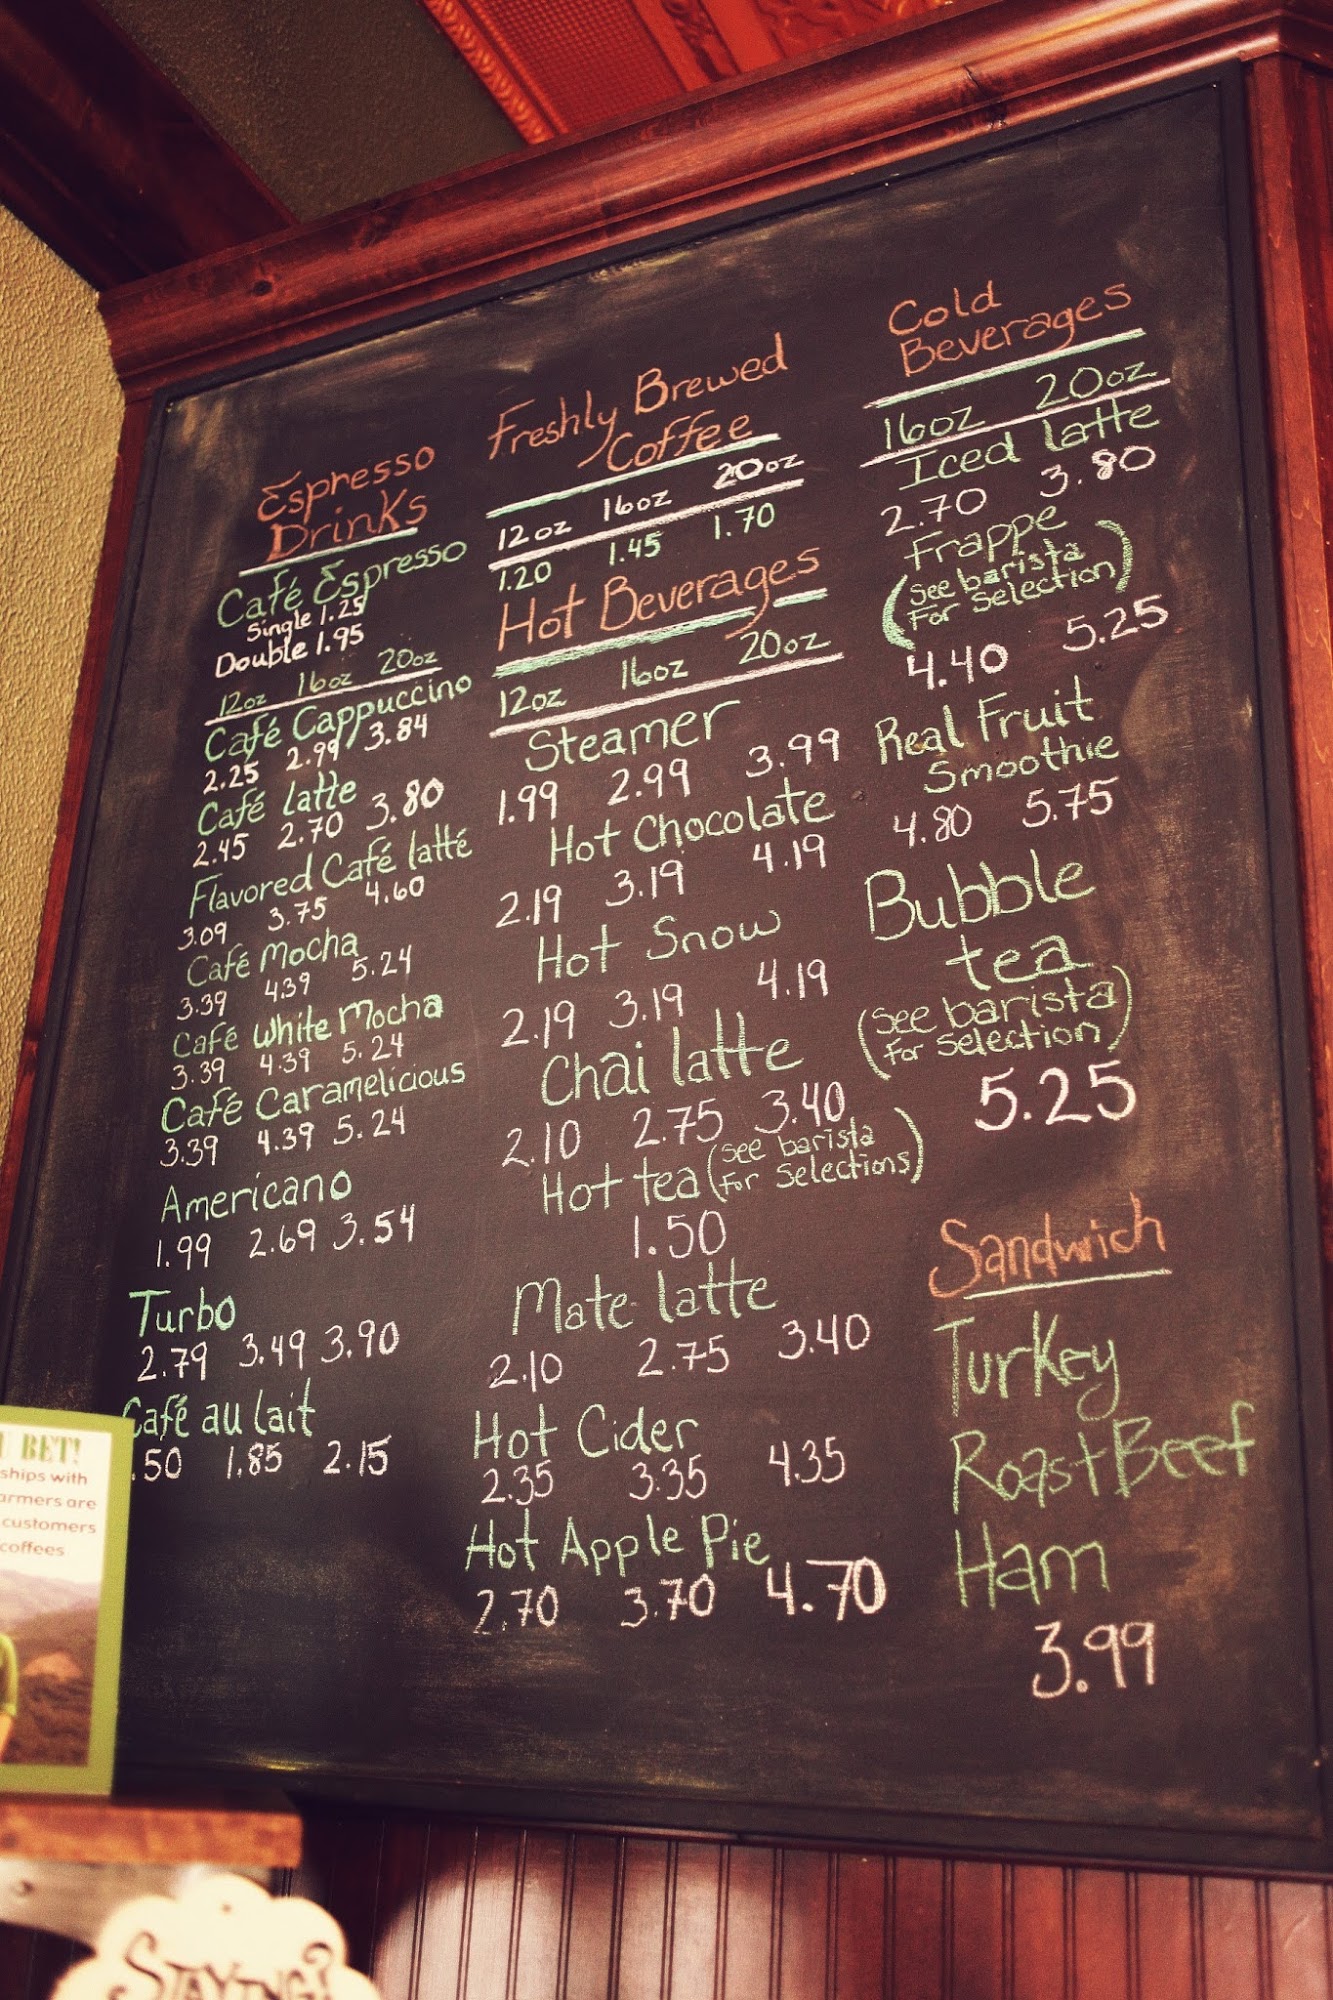 Espresso
Drinks
Café Espresso
Single 1.25
Double 1.95
12oz 16oz 20oz
Café Cappuccino
2.25 2.99 3.84
Café latte
2.45 2.70 3.80
Flavored Café latté
3.09 3.75 4.60
Café Mocha
3.39 4.39 5.24
Café White Mocha
3.39 4.39 5.24
Café Caramelicious
3.39 4.39 5.24
Americano
1.99 2.69 3.54
Turbo
2.79 3.49 3.90
Café au lait
.50 1.85 2.15
Freshly Brewed
Coffee
12oz 16oz 20oz
1.20 1.45 1.70
Hot Beverages
12oz 16oz 20oz
Steamer
1.99 2.99 3.99
Hot Chocolate
2.19 3.19 4.19
Hot Snow
2.19 3.19 4.19
Chai latte
2.10 2.75 3.40
Hot tea (see barista
for selections)
1.50
Mate latte
2.10 2.75 3.40
Hot Cider
2.35 3.35 4.35
Hot Apple Pie
2.70 3.70 4.70
Cold
Beverages
16oz 20oz
Iced latte
2.70 3.80
Frappe
(see barista
for selection)
4.40 5.25
Real Fruit
Smoothie
4.80 5.75
Bubble
tea
(see barista
for selection)
5.25
Sandwich
Turkey
Roast Beef
Ham
3.99
U BET!
ships with
armers are
customers
coffees
STAYING?